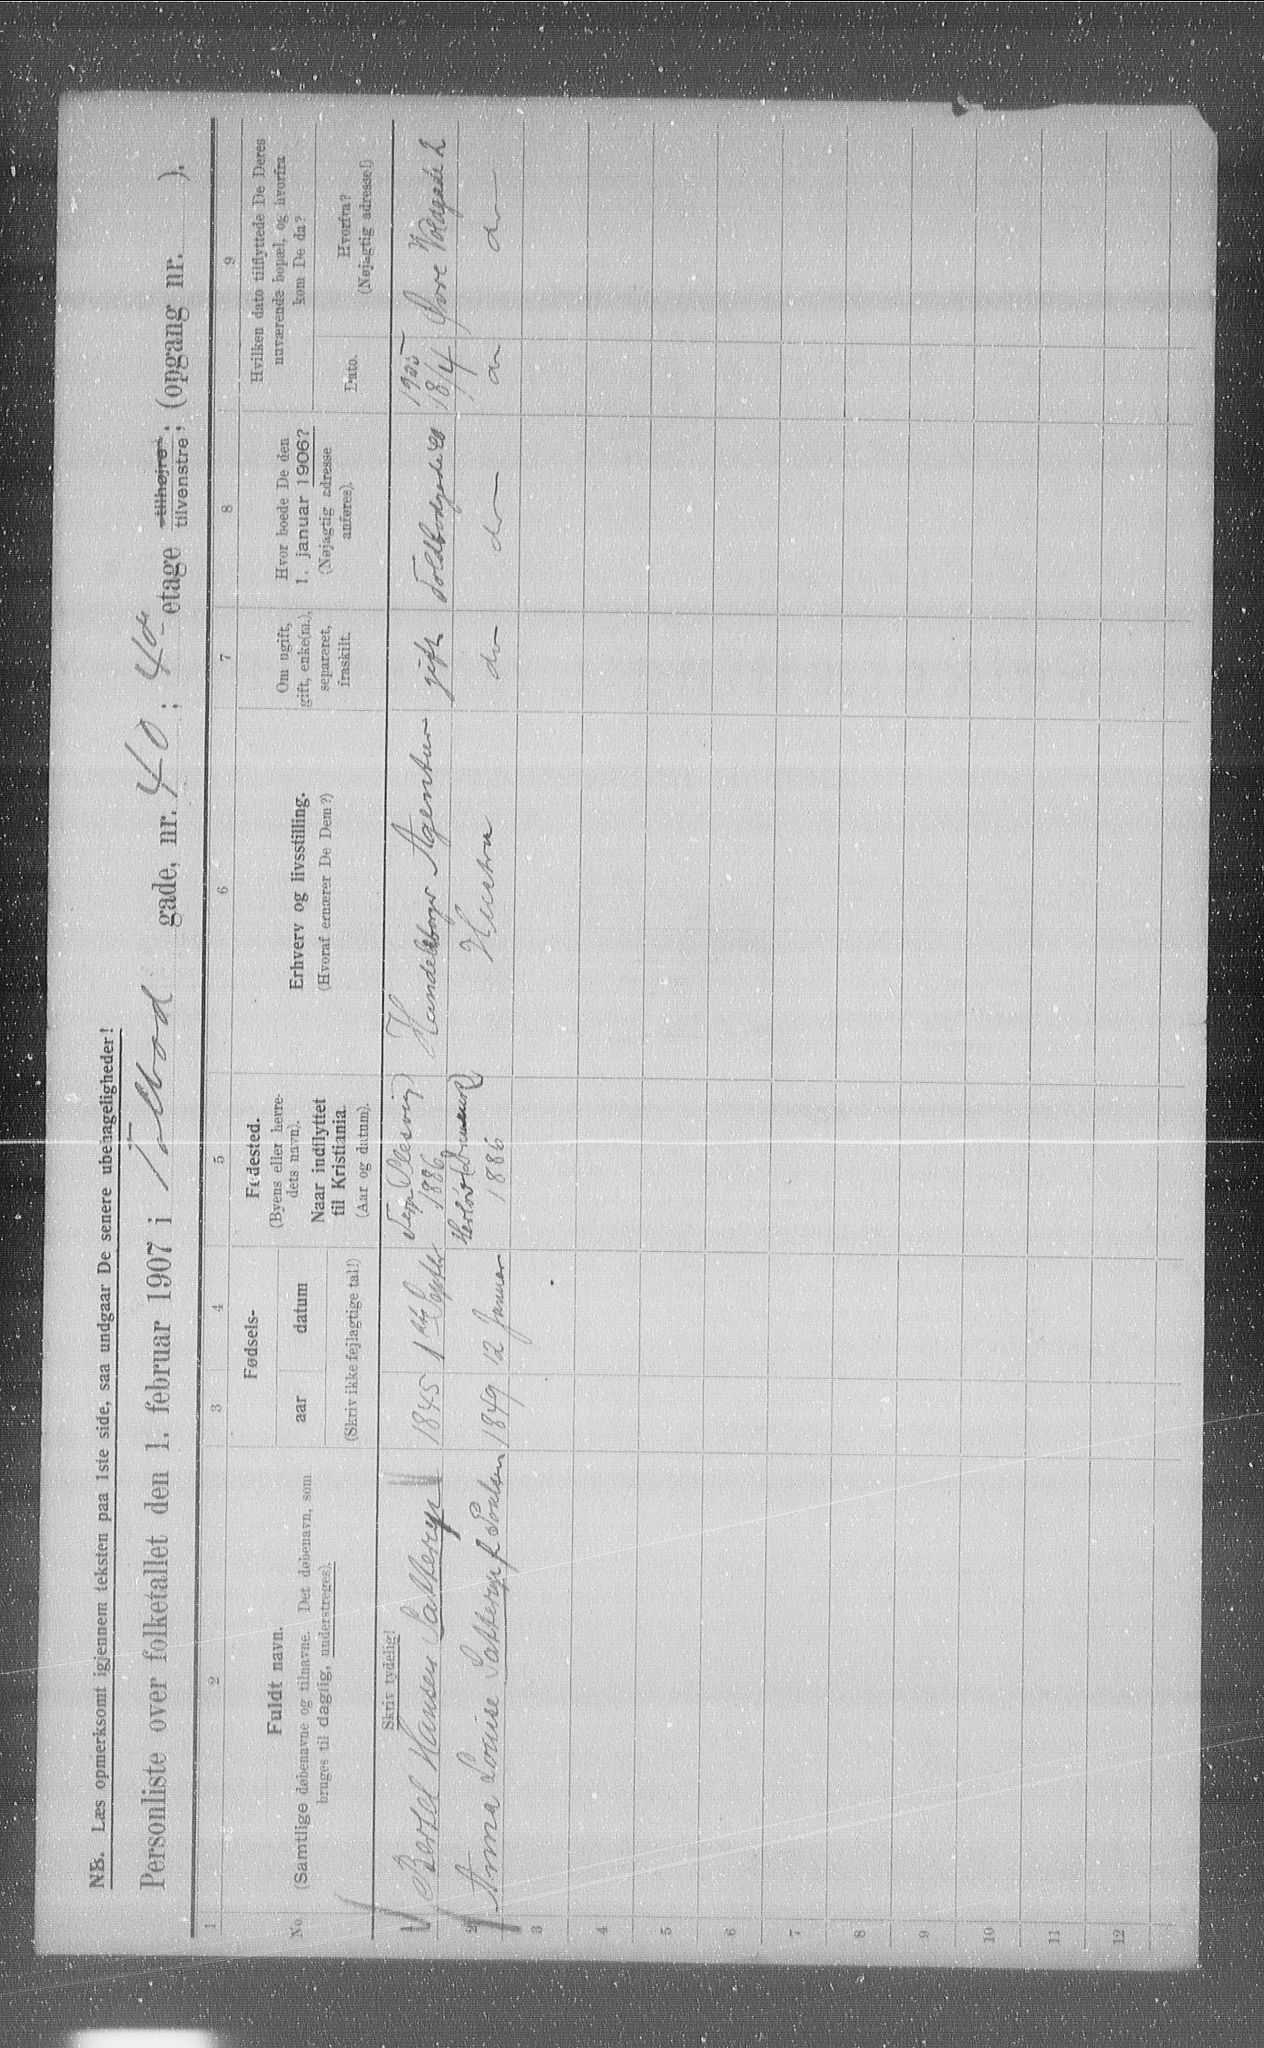 NB. Læs opmerksomt igjennem teksten paa 1ste side, saa undgaar De senere ubehageligheder!
Personliste over folketallet den 1. februar 1907 i Tolbod gade, nr. 40; 4de etage tilhøjre, tilvenstre, (opgang nr. ).
1 2 3 4 5 6 7 8 9
No.
Fuldt navn.
(Samtlige døbenavne og tilnavne. Det døbenavn, som
bruges til daglig, understreges).
Fødsels-
aar datum
(Skriv ikke fejlagtige tal!)
Fødested.
(Byens eller herre-
dets navn).
Naar indflyttet
til Kristiania.
(Aar og datum).
Erhverv og livsstilling.
(Hvoraf ernærer De Dem?)
Om ugift,
gift, enke(m.),
separeret,
fraskilt.
Hvor boede De den
1. januar 1906?
(Nøjagtig adresse
anføres).
Hvilken dato tilflyttede De Deres
nuværende bopæl, og hvorfra
kom De da?
Dato.
Hvorfra?
(Nøjagtig adresse!)
Skriv tydelig!
1 Bertel Hansen 1845 1ste Septbr Slesvig 1886 Agentur gift Toldbodgade 40 1905 18/4 Øvre Voldgade 2
2 Anna Louise f. Poulsen 1849 12 Januar Danmark 1886 Hustru do do do do
3
4
5
6
7
8
9
10
11
12